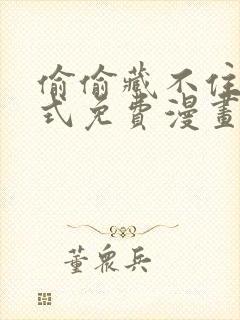 偷偷藏不住
式免费漫畫
董眾兵